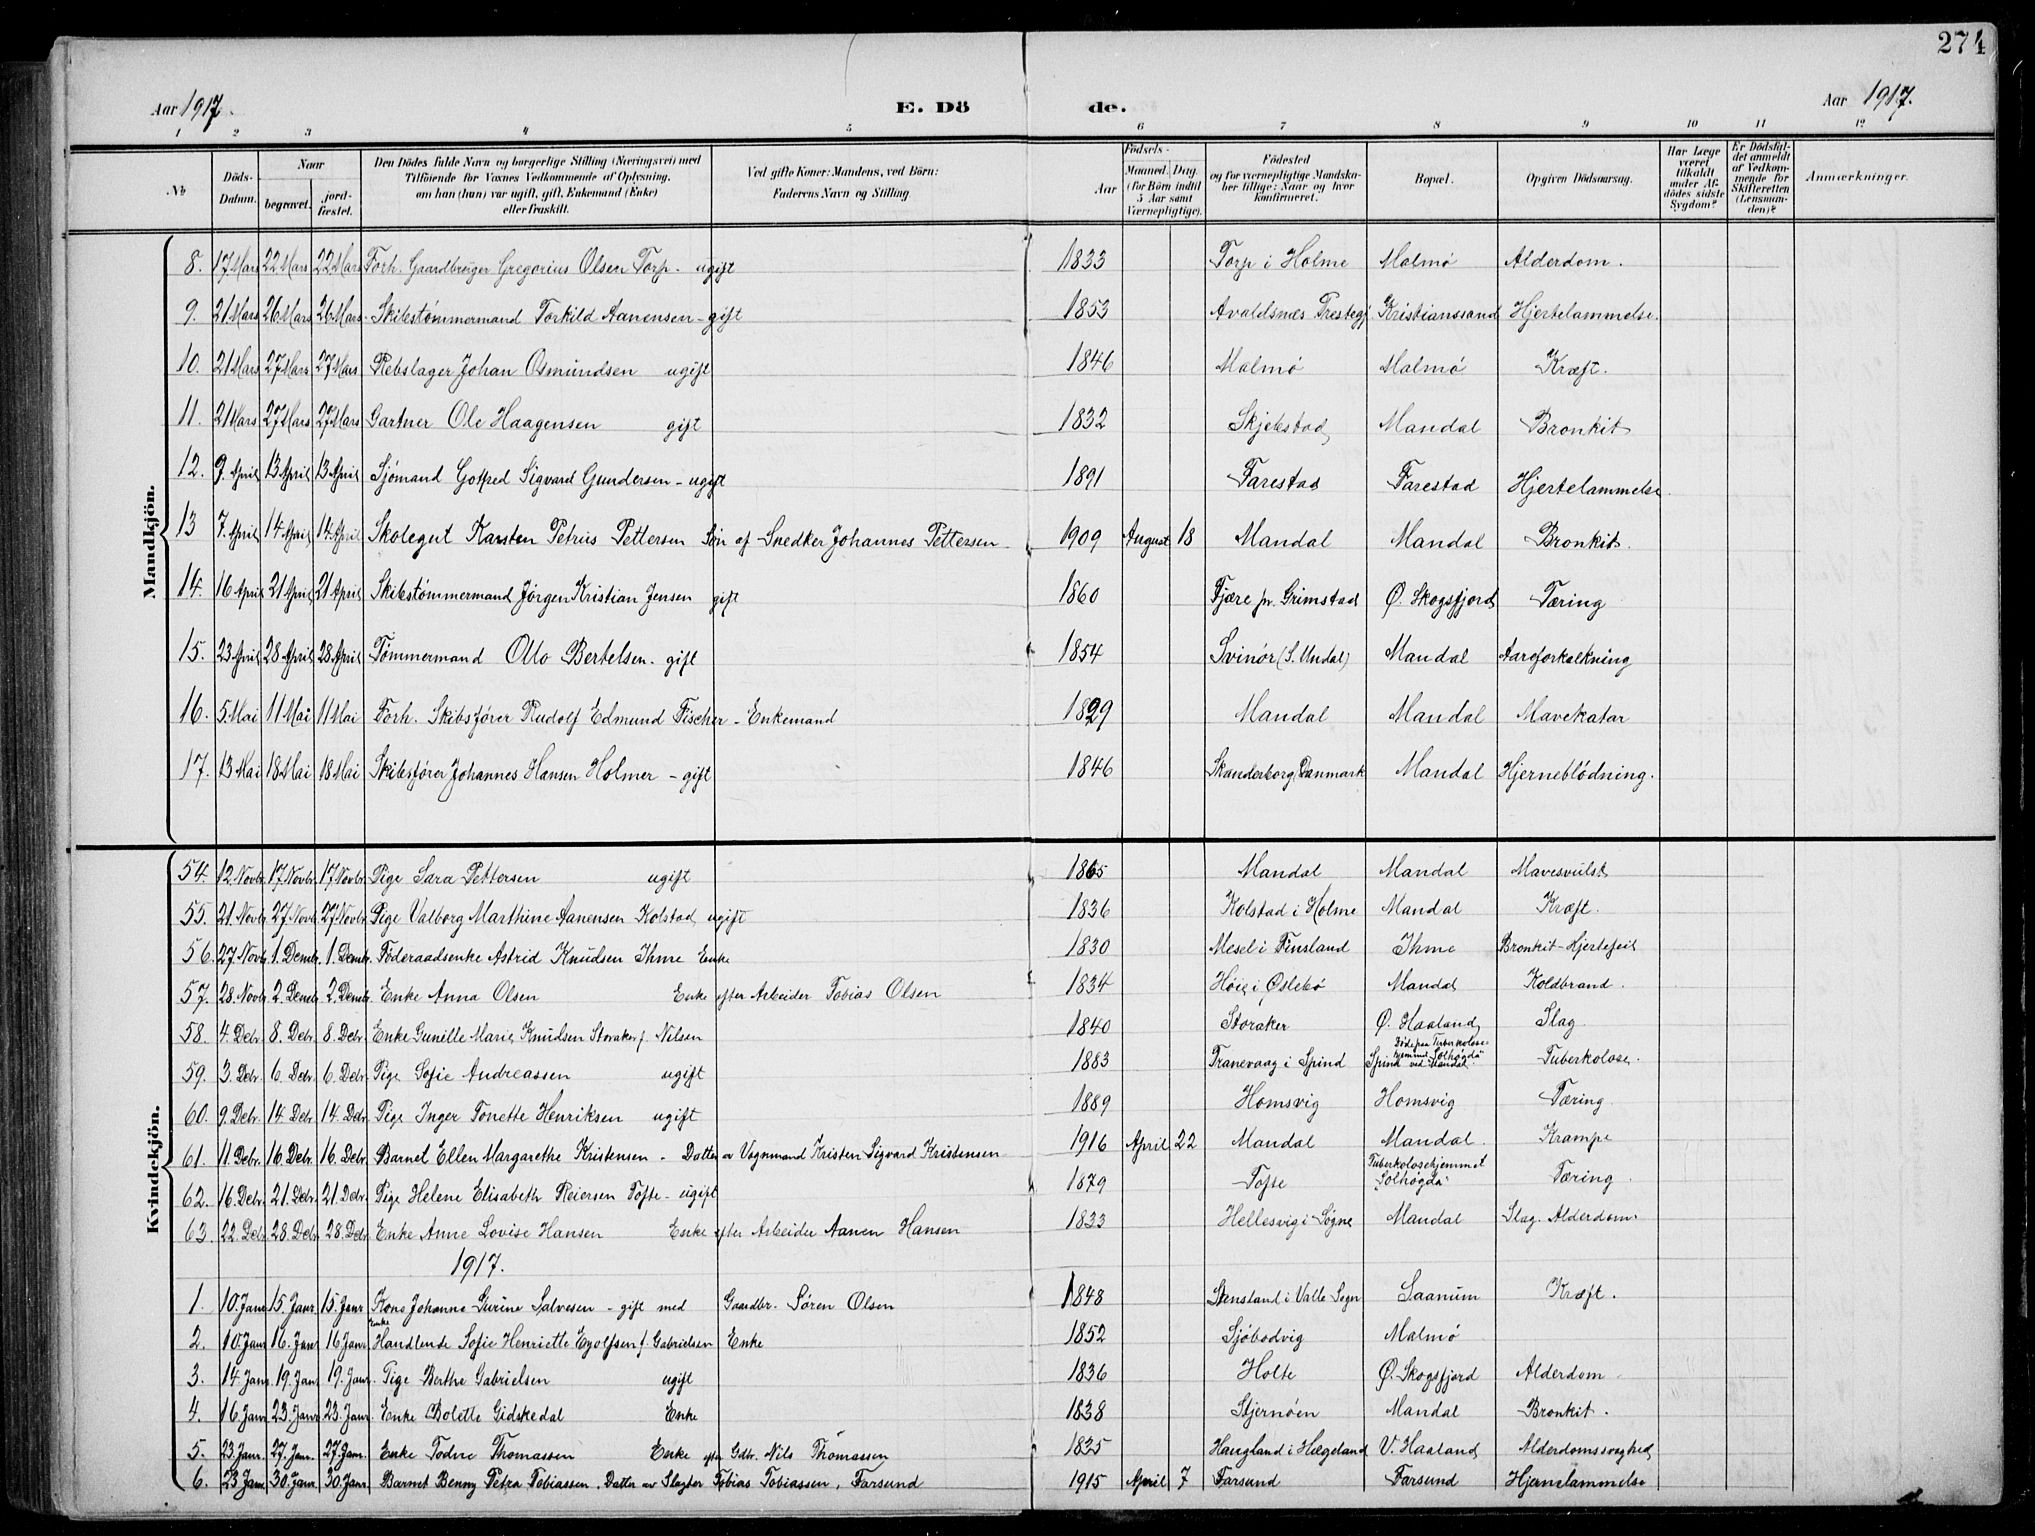 274
Aar 1917. E. Dö de. Aar 1917.
1 2 3 4 5 6 7 8 9 10 11 12
No Döds-Datum. Naar begravet. jord-fæstet. Den Dödes fulde Navn og borgerlige Stilling (Næringsvei) med Tilföiende for Voxnes Vedkommende af Oplysning, om han (hun) var ugift, gift, Enkemand (Enke) eller fraskilt. Ved gifte Koner: Mandens, ved Börn: Faderens Navn og Stilling. Födsels- Aar Maaned. Dag. (for Börn indtil 5 Aar samt Værnepligtige). Födested og for værnepligtige Mandska-ber tillige: Naar og hvor konfirmeret. Bopæl. Opgiven Dödsaarsag. Har Læge været tilkaldt under Af-dödes sidste Sygdom? Er Dödsfal-det anmeldt af Vedkom-mende for Skifteretten (Lensman-den)? Anmærkninger.
Mandkjön.
8. 17 Mars 22 Mars 22 Mars Forh. Gaardbruger Gregorius Olsen Torp. ugift 1833 Torp i Holme Malmö Alderdom.
9. 21 Mars 26 Mars 26 Mars Skibstømmermand Torkild Aanensen - gift 1853 Avaldsnes Prestegj Kristianssand Hjertelammelse.
10. 21 Mars 27 Mars 27 Mars Rebslager Johan Osmundsen ugift 1846 Malmö Malmö Kræft.
11. 21 Mars 27 Mars 27 Mars Gartner Ole Haagensen gift 1832 Skjebstad Mandal Bronkit
12. 9. April 13 April 13 April Sjömand Gotfred Sigvard Gundersen - ugift 1891 Farestad Farestad Hjertelammelse.
13 7. April 14 April 14 April Skolegut Karsten Petrus Pettersen Sön af Snedker Johannes Pettersen 1909 August 18 Mandal Mandal Bronkit.
14. 16 April 21 April 21 April Skibstømmermand Jørgen Kristian Jensen gift 1860 Fjære pr. Grimstad Ø. Skogsfjord Tæring
15. 23 April 28 April 28 April Tømmermand Otto Bertelsen. gift 1854 Svinør (S. Undal) Mandal Aareforkalkning
16. 5. Mai 11 Mai 11 Mai Forh. Skibsfører Rudolf Edmund Fischer - Enkemand 1829 Mandal Mandal Mavekatar
17. 13 Mai 18 Mai 18 Mai Skibsfører Johannes Hansen Holmer - gift 1846 Skanderborg, Danmark Mandal Hjerneblödning.
Kvindekjön.
54. 12 Novbr. 17 Novbr. 17 Novbr. Pige Sara Pettersen ugift 1865 Mandal Mandal Mavesvulst
55. 21. Novbr. 27 Novbr. 27 Novbr. Pige Valborg Marthine Aanensen Kolstad ugift 1836 Kolstad i Holme Mandal Kræft.
56. 27 Novbr. 1. Dembr. 1. Dembr. Føderaadsenke Astrid Knudsen Ihme Enke 1830 Mesel i Finsland Ihme Bronkit-Hjertefeil
57. 28. Novbr. 2. Dembr. 2. Dembr. Enke Anna Olsen Enke efter Arbeider Tobias Olsen 1834 Høie i Øslebø Mandal Koldbrand.
58. 4. Debr. 8. Debr. 8. Debr. Enke Gunille Marie Knudsen Storaker f. Nilsen 1840 Storaker Ø. Haaland Slag
59. 3. Debr. 6. Debr. 6. Debr. Pige Sofie Andreassen ugift 1883 Tranevaag i Spind Spind Döde paa Tuberkolose-hjemmet "Solhøgda" ved Mandal. Tuberkolose.
60. 9. Debr. 14. Debr. 14. Debr. Pige Inger Tonette Henriksen ugift 1889 Homsvig Homsvig Tæring
61. 11. Debr. 16. Debr. 16. Debr. Barnet Ellen Margarethe Kristensen - Datter av Vognmand Kristen Sigvard Kristensen 1916 April 22 Mandal Mandal. Krampe
62. 16. Debr. 21. Debr. 21. Debr. Pige Helene Elisabeth Reiersen Tofte - ugift 1879 Tofte Tuberkolosehjemmet "Solhøgda" Tæring
63. 22. Debr. 28. Debr. 28. Debr. Enke Anne Lovise Hansen Enke efter Arbeider Aanen Hansen 1833 Hellesvig i Søgne Mandal Slag. Alderdom.
1917.
1. 10. Janr. 15. Janr. 15. Janr. Kone Johanne Gurine Salvesen - gift med Gaardbr. Søren Olsen 1848 Stensland i Valle Sogn Saanum Kræft.
2. 10. Janr. 16. Janr. 16 Janr. Enke Handlende Sofie Henriette Egolfsen f. Gabrielsen Enke 1852 Sjöbodvig Malmö
3. 14. Janr. 19. Janr. 19. Janr. Pige Berthe Gabrielsen ugift 1836 Holte Ø. Skogsfjord Alderdom
4. 16. Janr. 23. Janr. 23. Janr. Enke Bolette Gidskedal Enke 1838 Stjernöen Mandal Bronkit.
5. 23. Janr. 27. Janr. 27. Janr. Enke Todne Thomassen Enke efter Gdbr. Nils Thomassen 1835 Haugland i Hægeland V. Haaland Alderdomssvaghed
6. 23 Janr. 30. Janr. 30. Janr. Barnet Benny Petra Tobiassen. Datter av Slagter Tobias Tobiassen, Farsund 1915 April 7 Farsund Farsund Hjernelammelse